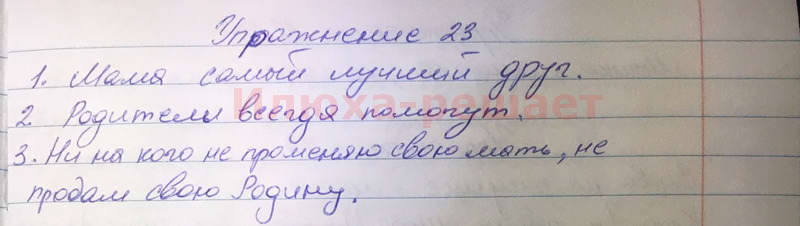 Упражнение 23
1. Мама самый лучший друг.
Илюха-решает
2. Родители всегда помогут.
3. Ни на кого не променяю свою мать, не
продам свою Родину.